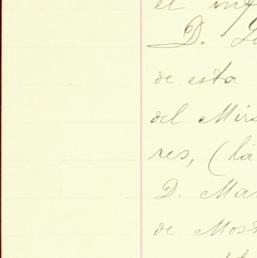 el inf
D. Ju
de esta
del Mira
res, (la
D. Ma
de Mos